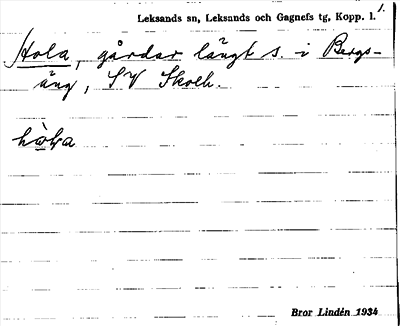 1.
Leksands sn, Leksands och Gagnefs tg, Kopp. l.
Hola, gårdar längt s. i Bergs-
äng, SV Skolh.
Bror Lindén 1934